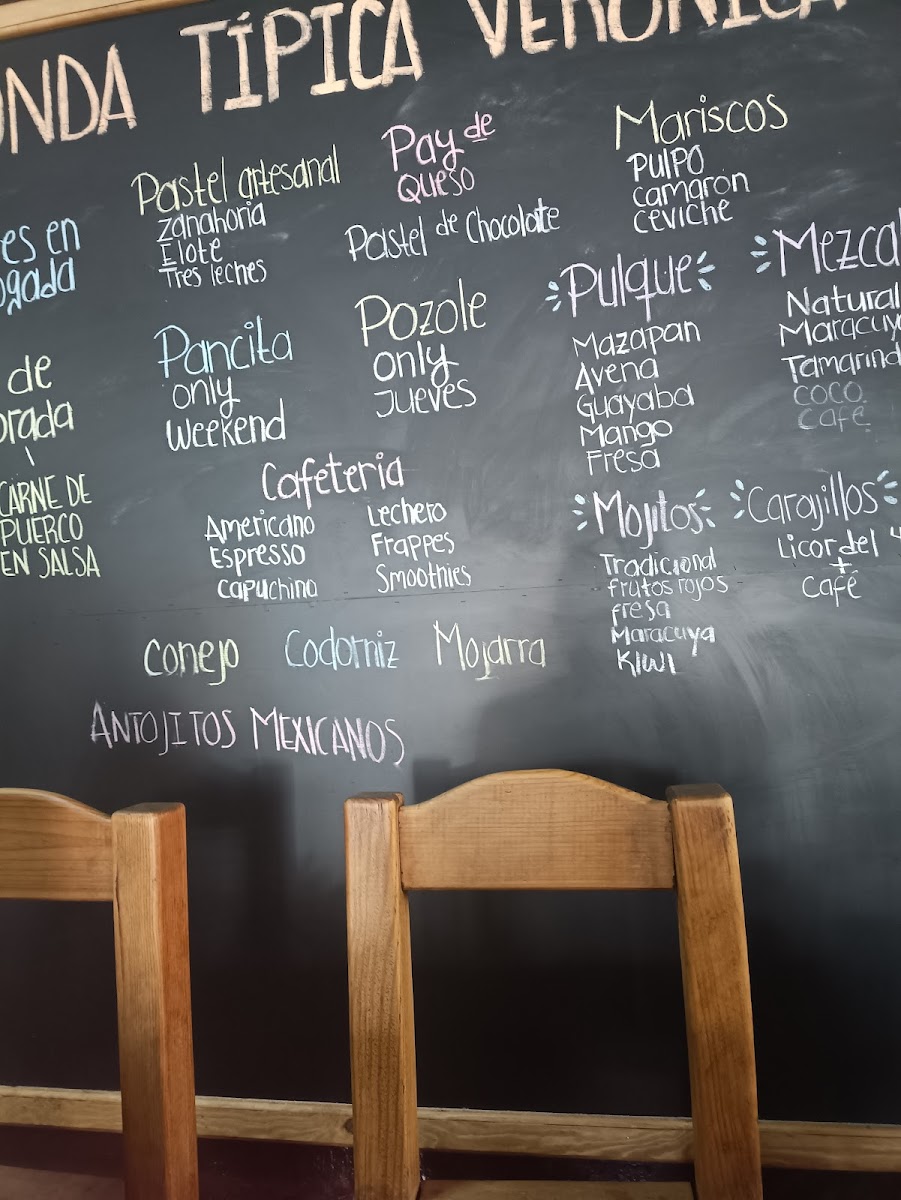 TÍPICA VERÓNICA
Pastel artesanal
Zanahoria
Elote
Tres leches
Pay de
Queso
Pastel de Chocolate
Mariscos
PULPO
camarón
ceviche
es en
ogada
de
orada
CARNE DE
PUERCO
EN SALSA
Pancita
only
Weekend
Pozole
only
Jueves
Pulque
Mazapan
Avena
Guayaba
Mango
Fresa
Mezcal
Natural
Maracuy
Tamarind
COCO
Café
Cafeteria
Americano
Espresso
Capuchino
Lechero
Frappes
Smoothies
Mojitos
Tradicional
frutos rojos
fresa
Maracuya
Kiwi
Carajillos
Licor del 4
+
Café
Conejo Codorniz Mojarra
ANTOJITOS MEXICANOS